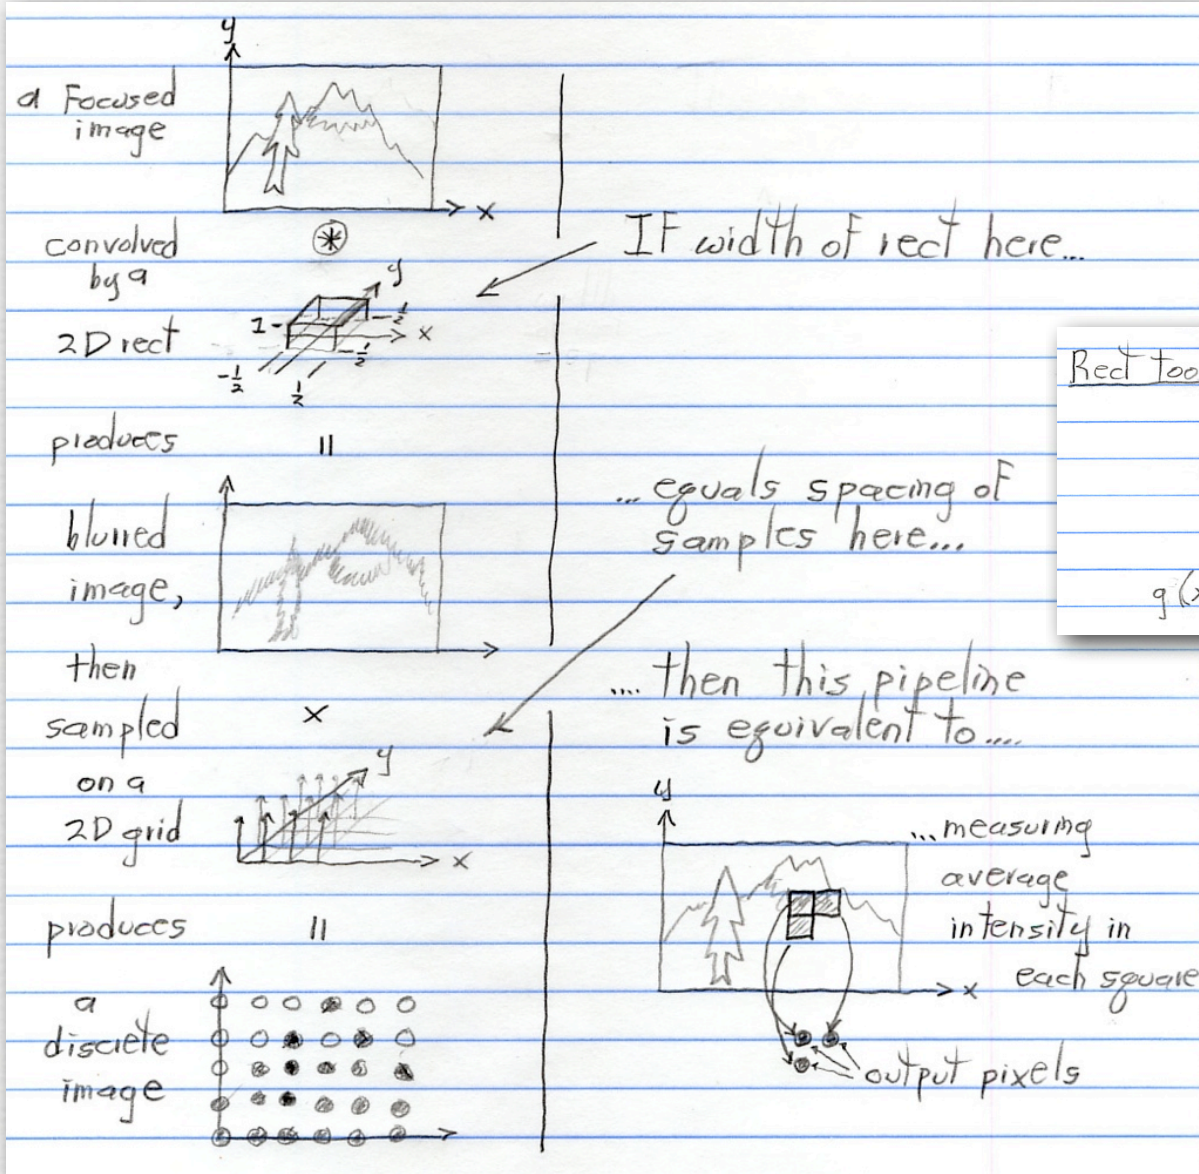 y
a Focused
image
x
convolved
by a
2D rect
y
1
-½
x
-½
-½
½
produces
=
blurred
image,
then
sampled
×
on a
2D grid
y
x
produces
=
a
discrete
image
If width of rect here...
...equals spacing of
samples here...
....then this pipeline
is equivalent to....
y
...measuring
average
intensity in
each square
x
output pixels
Rect too
g(x